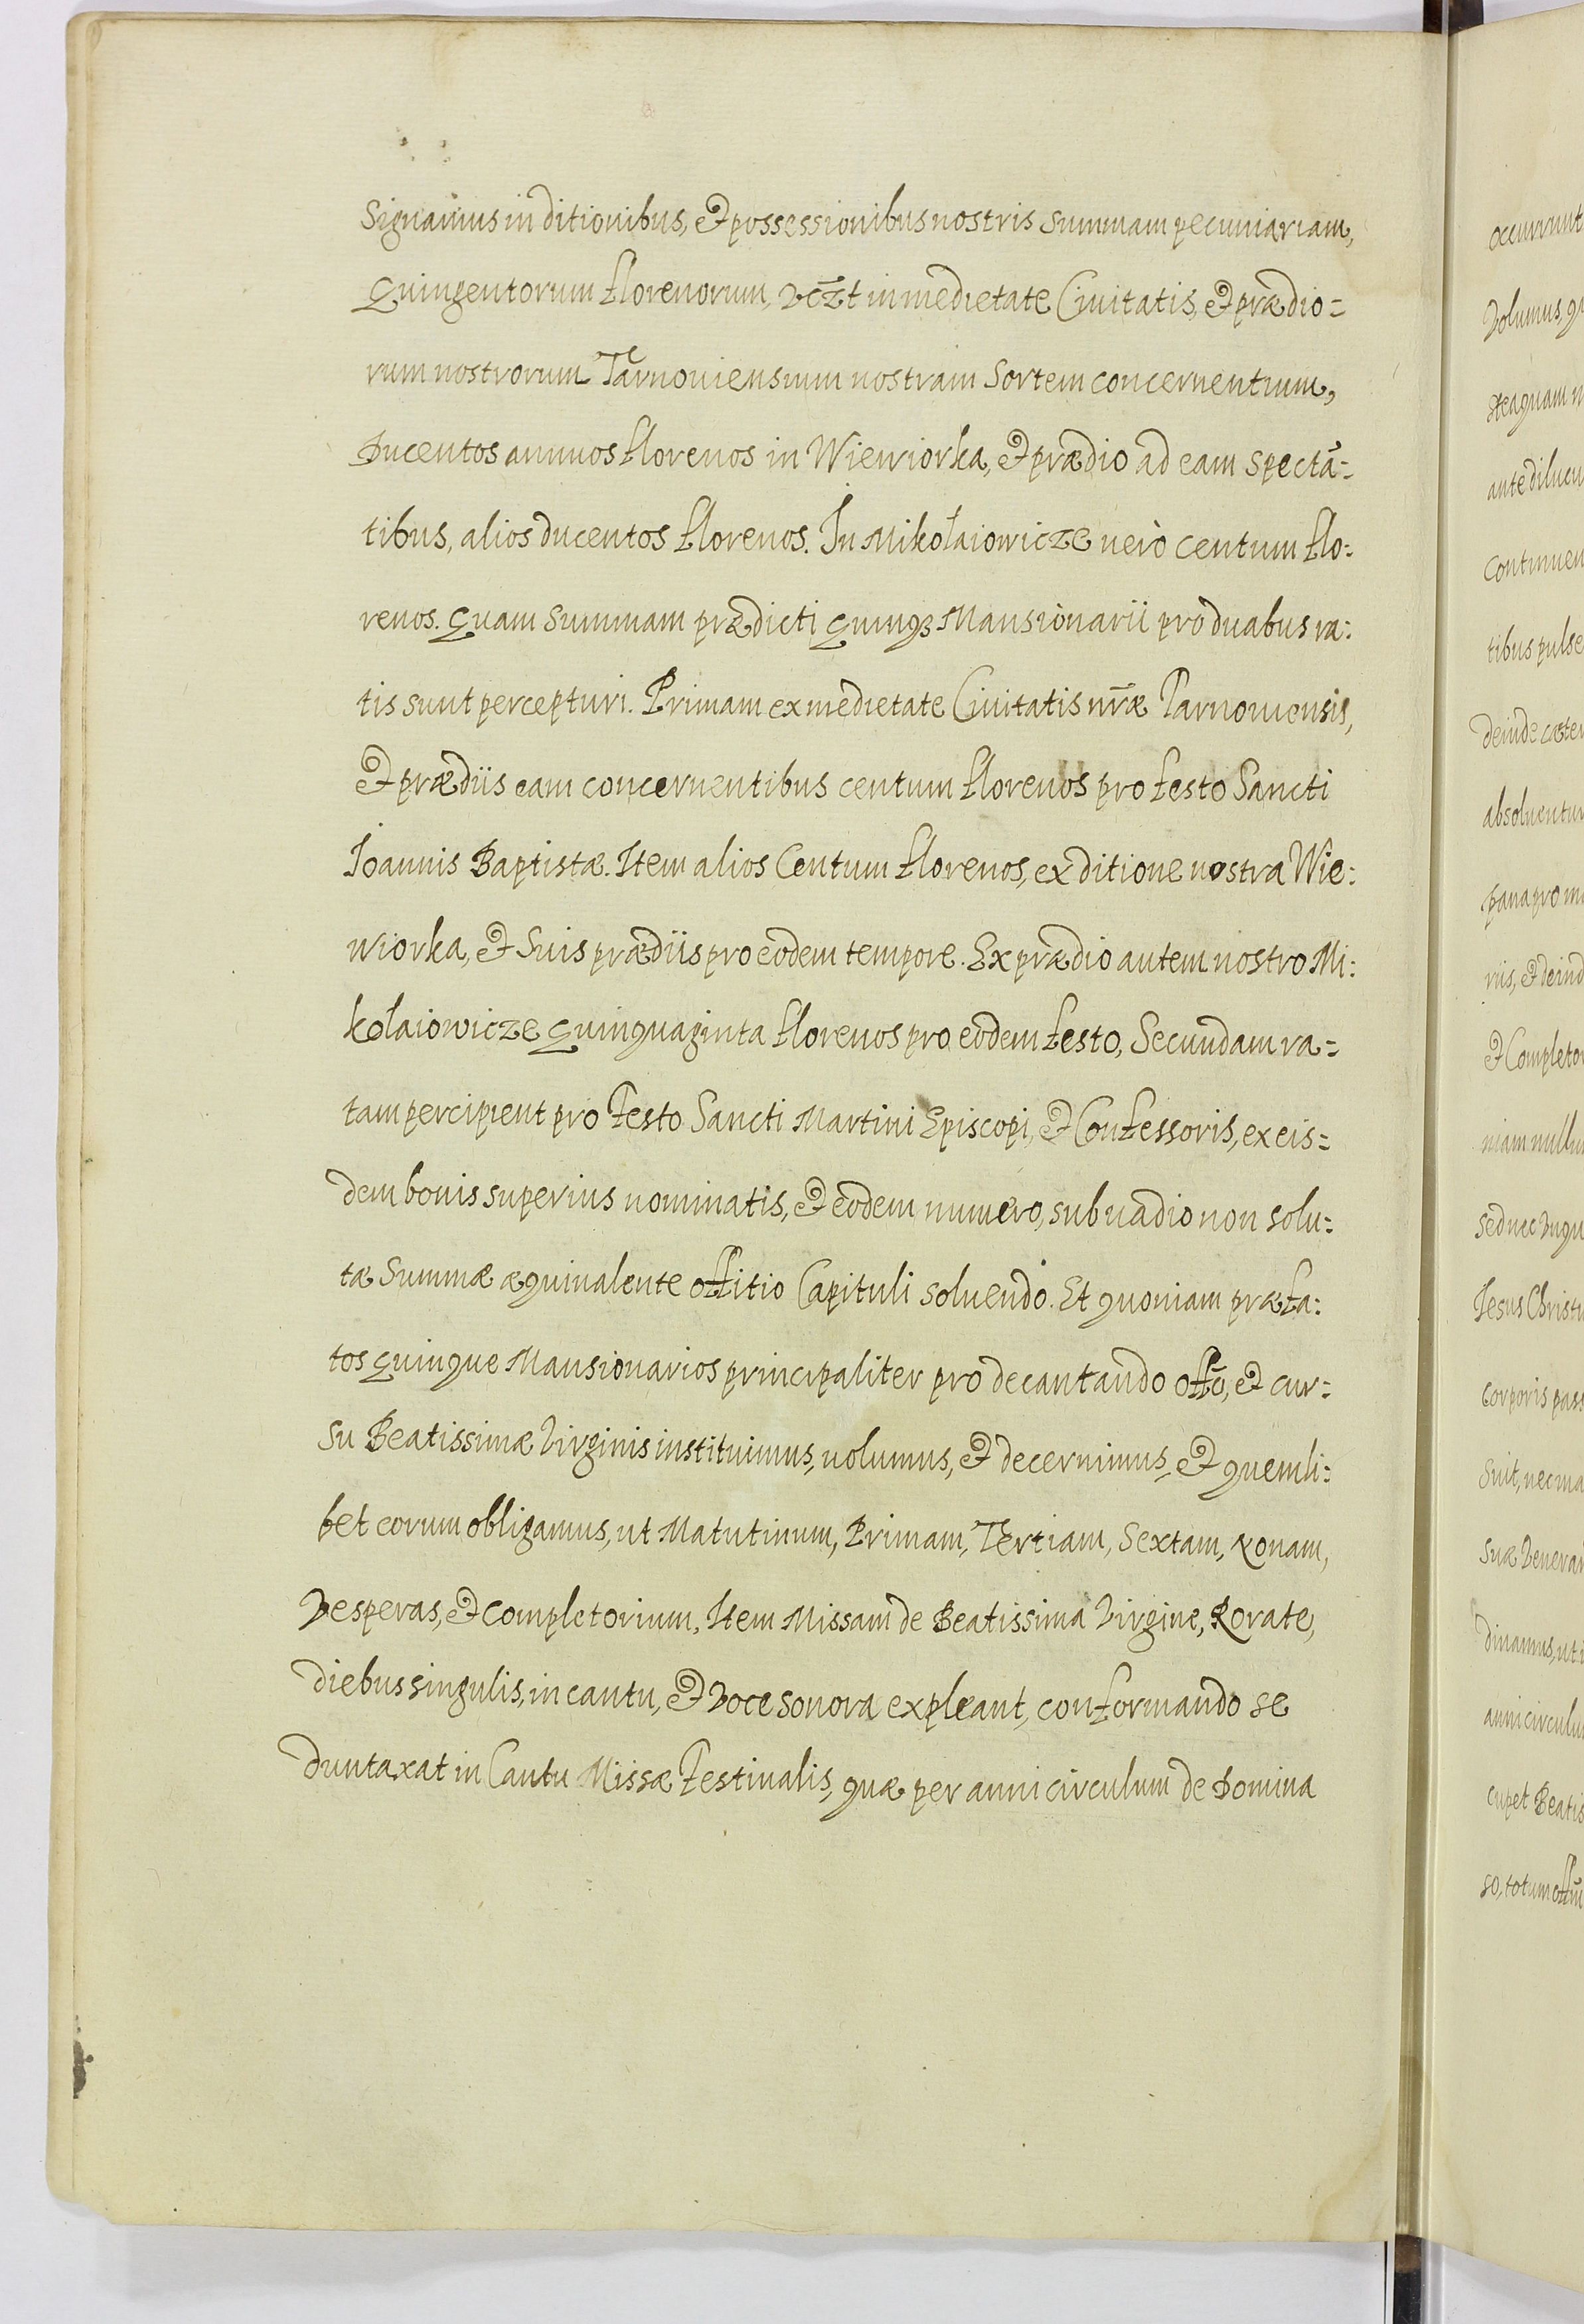 Signamus in ditionibus, et possessionibus nostris summam pecuniariam,
Quingentorum florenorum, vc̃zt in medietate Ciuitatis, et prædio=
rum nostrorum Tarnouiensium nostram sortem concernentium,
Ducentos annuos florenos in Wiewiorka, et prædio ad eam spectã=
tibus, alios ducentos florenos. In Mikołaiowicze uerò centum flo:
renos. Quam summam prædicti quinqȝ Mansionarii pro duabus ra:
tis sunt percepturi. Primam ex medietate Ciuitatis nr̃æ Tarnouiensis,
et prædiis eam concernentibus centum florenos pro festo Sancti
Ioannis Baptistæ. Item alios Centum florenos, ex ditione nostra Wie:
wiorka, et suis prædiis pro eodem tempore. Ex prædio autem nostro Mi:
kołaiowicze quinquaginta florenos pro eodem festo, Secundam ra=
tam percipient pro festo Sancti Martini Episcopi, et Confessoris, ex eis=
dem bonis superius nominatis, et eodem numero, sub uadio non solu=
tæ summæ æquiualente offitio Capituli soluendo. Et quoniam præfa:
tos quinque Mansionarios principaliter pro decantando offõ, et cur=
su Beatissimæ Virginis instituimus, uolumus, et decernimus, et quemli:
bet eorum obligamus, ut Matutinum, Primam, Tertiam, Sextam, Nonam,
Vesperas, et Completorium, Item Missam de Beatissima Virgine, Rorate,
diebus singulis, in cantu, et voce sonora expleant, conformando se
duntaxat in Cantu Missæ Festiualis, quæ per anni circulum de Domina
occurrunt
Volumus, q
steaquam n
antedilucu
continuen
tibus pulse
deinde cæter
absoluentur
pana pro m
riis, et deind
et Completor
niam nullu
sed nec vnqu
Iesus Christu
corporis pass
suit, nec ma
suæ Venerar
dinamus, ut i
anni circulu
cupet Beatis
so, totum offm̃